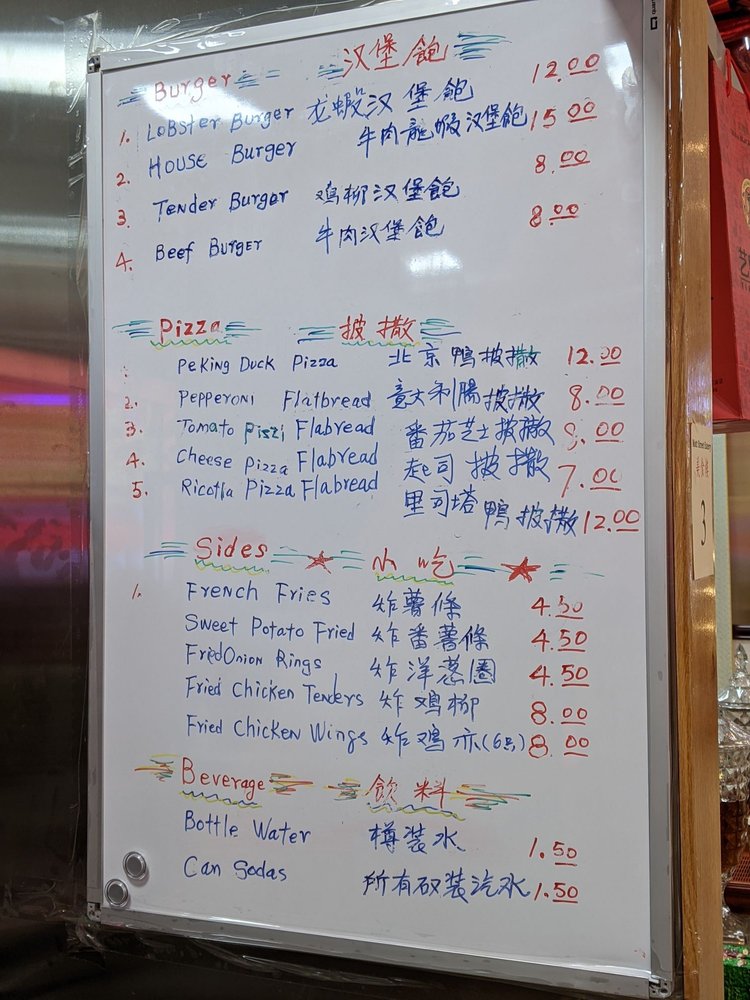 Burger 汉堡飽
1. LoBster Burger 龙蝦汉堡飽 12.00
2. House Burger 牛肉龍蝦汉堡飽 15.00
3. Tender Burger 鸡柳汉堡飽 8.00
4. Beef Burger 牛肉汉堡飽 8.00
Pizza 披撒
Peking Duck Pizza 北京鴨披撒 12.00
2. Pepperoni Flatbread 意大利腸披撒 8.00
3. Tomato Piszi Flabread 番茄芝士披撒 8.00
4. Cheese Pizza Flabread 起司披撒 7.00
5. Ricotla Pizza Flabread 里司塔鴨披撒 12.00
Sides 小吃
1. French Fries 炸薯條 4.50
Sweet Potato Fried 炸番薯條 4.50
FriedOnion Rings 炸洋葱圈 4.50
Fried Chicken Tenders 炸鸡柳 8.00
Fried Chicken Wings 炸鸡亦(6只) 8.00
Beverage 飲料
Bottle Water 樽装水 1.50
Can Sodas 所有砍装汽水 1.50
3